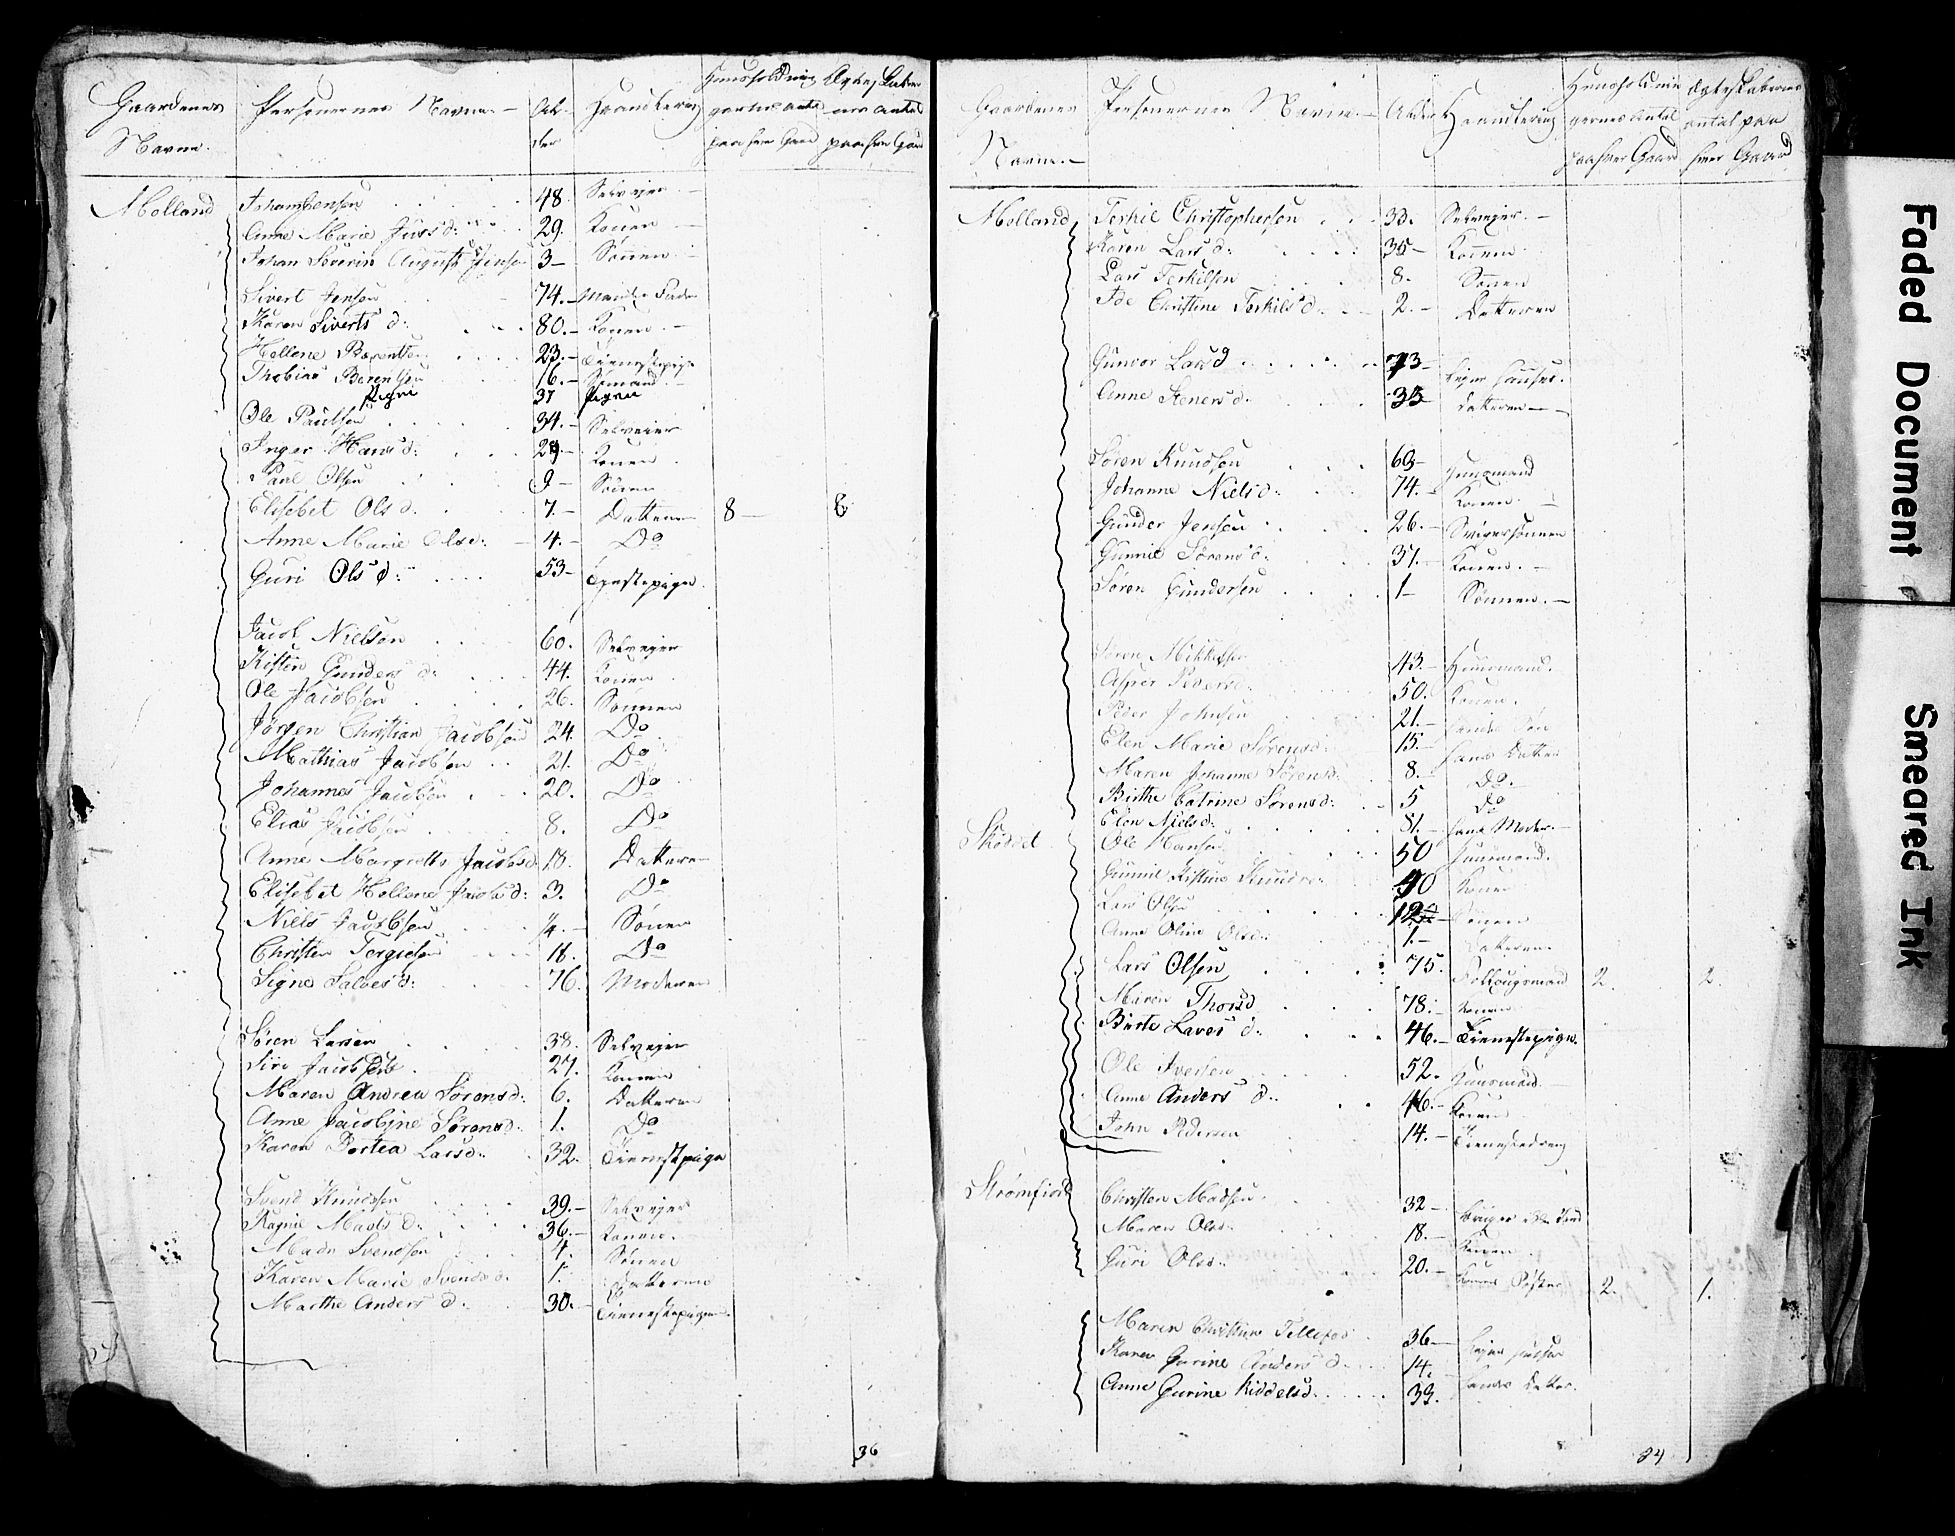 Gaardenes Personernes Navne. – Al- Haandtering Huusholdnin Ægteskaber
Navne. der gernes antal nes antal
paa hver Gaard paa hver Gaard
Molland Johan Jensen 48. Selveyer. –
Anne Marie Jensd: 29. Konen –
Johan Severin August Jensen 3 – Sønnen. –
Sivert Jensen 74. – Mandens Fader
Karen Siverts d: 80. – Konen. –
Hellene Berentsen 23. – Tienestepige
Thobias Berentsen 16. –
Pigen 37 Pigen
Ole Paulsen 34. – Selveier
Inger Hans d: 29. – Konen
Paul Olsen 9 – Sønnen
Elisebet Ols d. 7. – Datteren 8 – 8
Anne Marie Olsd: 4. – Do
Guri Ols d: 53 – Tienstepige.
Jacob Nielsen 60. Selveyer
Kistin Gunders d: 44. Konen
Ole Jacobsen 26. Sønnen
Jørgen Christian Jacobsen 24. Do
Mathias Jacobsen 21. Do
Johannes Jacobsen 20. Do
Elias Jacobsen 8. Do
Anne Margrethe Jacobsd 18. Datteren
Elisebet Hellene Jacobsd: 3. Do
Niels Jacobsen 14. – Sønnen
Christen Tergielsen 18. Do
Signe Salves d: 76. Moderen
Søren Larsen 38. Selveyer
Siri Jacobsdt. 27. Konen
Maren Andrea Sørensd: 6. Datteren
Anne Jacobine Sørensd: 1. Do
Karen Dortea Larsd: 32. Tienestpige
Svend Knudsen 39. – Selveyer
Ragnil Mads d: 36. – Konen.
Mads Svendsen 4. Sønnen
Karen Marie Svends d. 1. Datteren
Marthe Anders d. 30. – Tienestepigen.
36
Gaardenes Personernes Navne. – Alder Haandtering Huusholdnin Ægteskabernes
Navne. – gernes Antal antal paa
paa hver Gaard hver Gaard
Molland Terkil Christophersen 33. Selveyer. –
Karen Lars d: 35 – Konen
Lars Terkilsen 8. Sønnen
Ide Christine Terkils d. 2. – Datteren
Gunvor Lars d 73 –
Anne Steners d. 35 Datteren –
Søren Knudsen 63 – Huusmand
Johanne Niels d: 74. – Konen. –
Gunder Jensen 26. – Svigersønnen
Gunnil Sørens d: 37. – Konen. –
Søren Gundersen 1 – Sønnen. –
Søren Mikkelsen 43. – Huusmand.
Asper Peders d. 50. Konen.
Peder Johnsen 21. –
Elen Marie Sørensd: 15. – hans Datter
Maren Johanne Sørensd: 8. – Do. –
Birthe Catrine Sørensd: 5 Do
Elen Nielsd: 81. – hans Moder. –
Skoddel Ole Hansen 50 Huusmand.
Gunnil Kistine Knudsd: 40 Konen
Lars Olsen 12 – Sønnen
Anne Oline Olsd: 1. – Datteren
Lars Olsen 75. 2. 2.
Maren Thorsd 78. – Konen
Birte Laves d: 46. – Tienestepige.
Ole Iversen 52. Huusmand. –
Anne Anders d. 46. – Konen
John Pedersen 14. – Tienestedreng
Strømfiord Christen Madsen. 32 –
Maren Olsd: 18. – Konen
Guri Olsd: 20. – Konens Søster 2. 1.
Maren Christine Tellefsd. 36 –
Karen Gurine Anders d. 14. hendes Datter.
Anne Gurine Kiddelsd. 33.
34
Faded Document
Smeared Ink